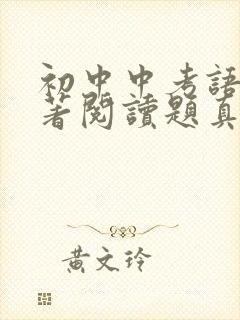 初中中考語
著閱讀題真
黃文玲